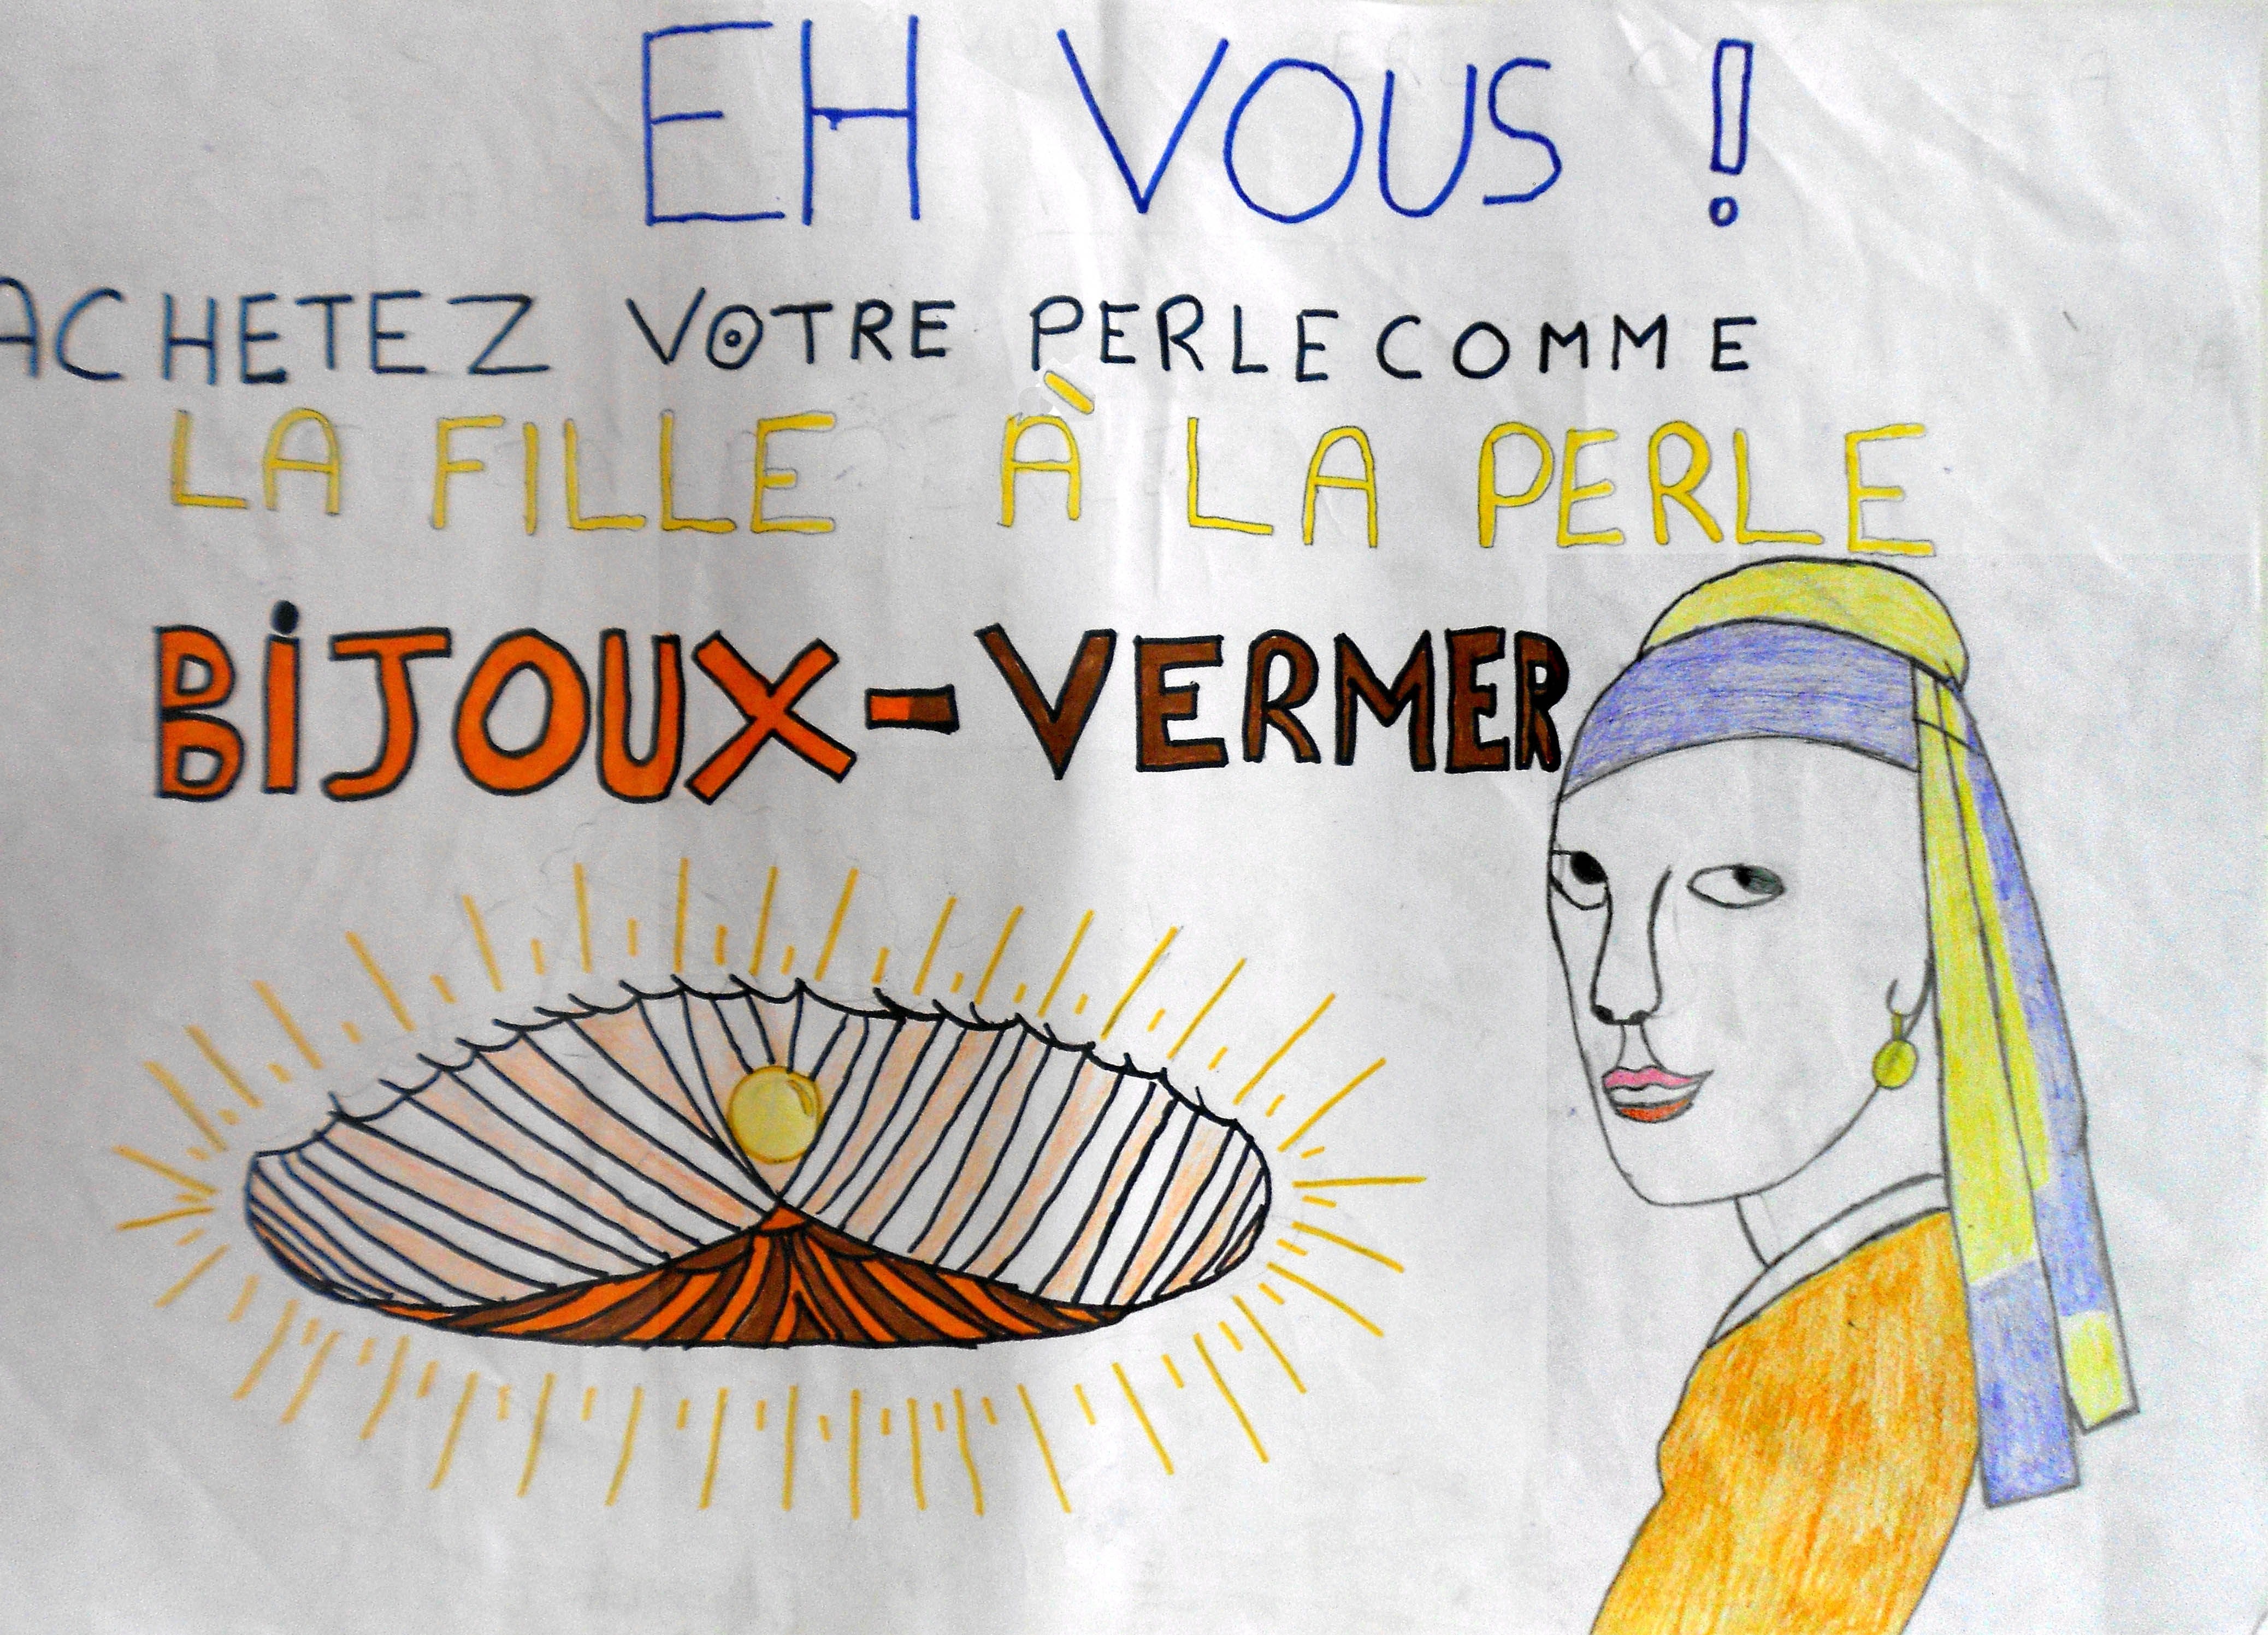 EH VOUS !
ACHETEZ VOTRE PERLE COMME
LA FILLE À LA PERLE
BiJOUX-VERMER